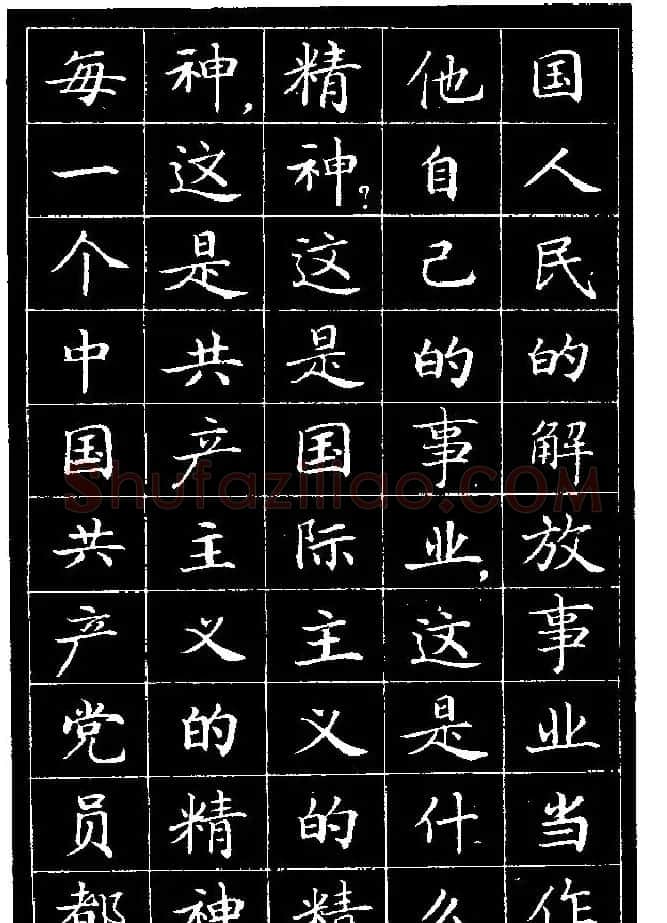 国人民的解放事业当作
他自己的事业，这是什么
精神？这是国际主义的精
神，这是共产主义的精神
每一个中国共产党员都
Shufaziliao.COM